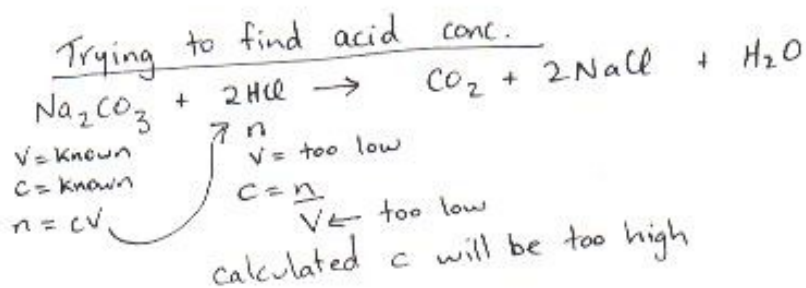 Trying to find acid conc.
Na₂CO₃ + 2HCl → CO₂ + 2NaCl + H₂O
V = known n
C = known V = too low
n = cV C = n/V ← too low
calculated c will be too high